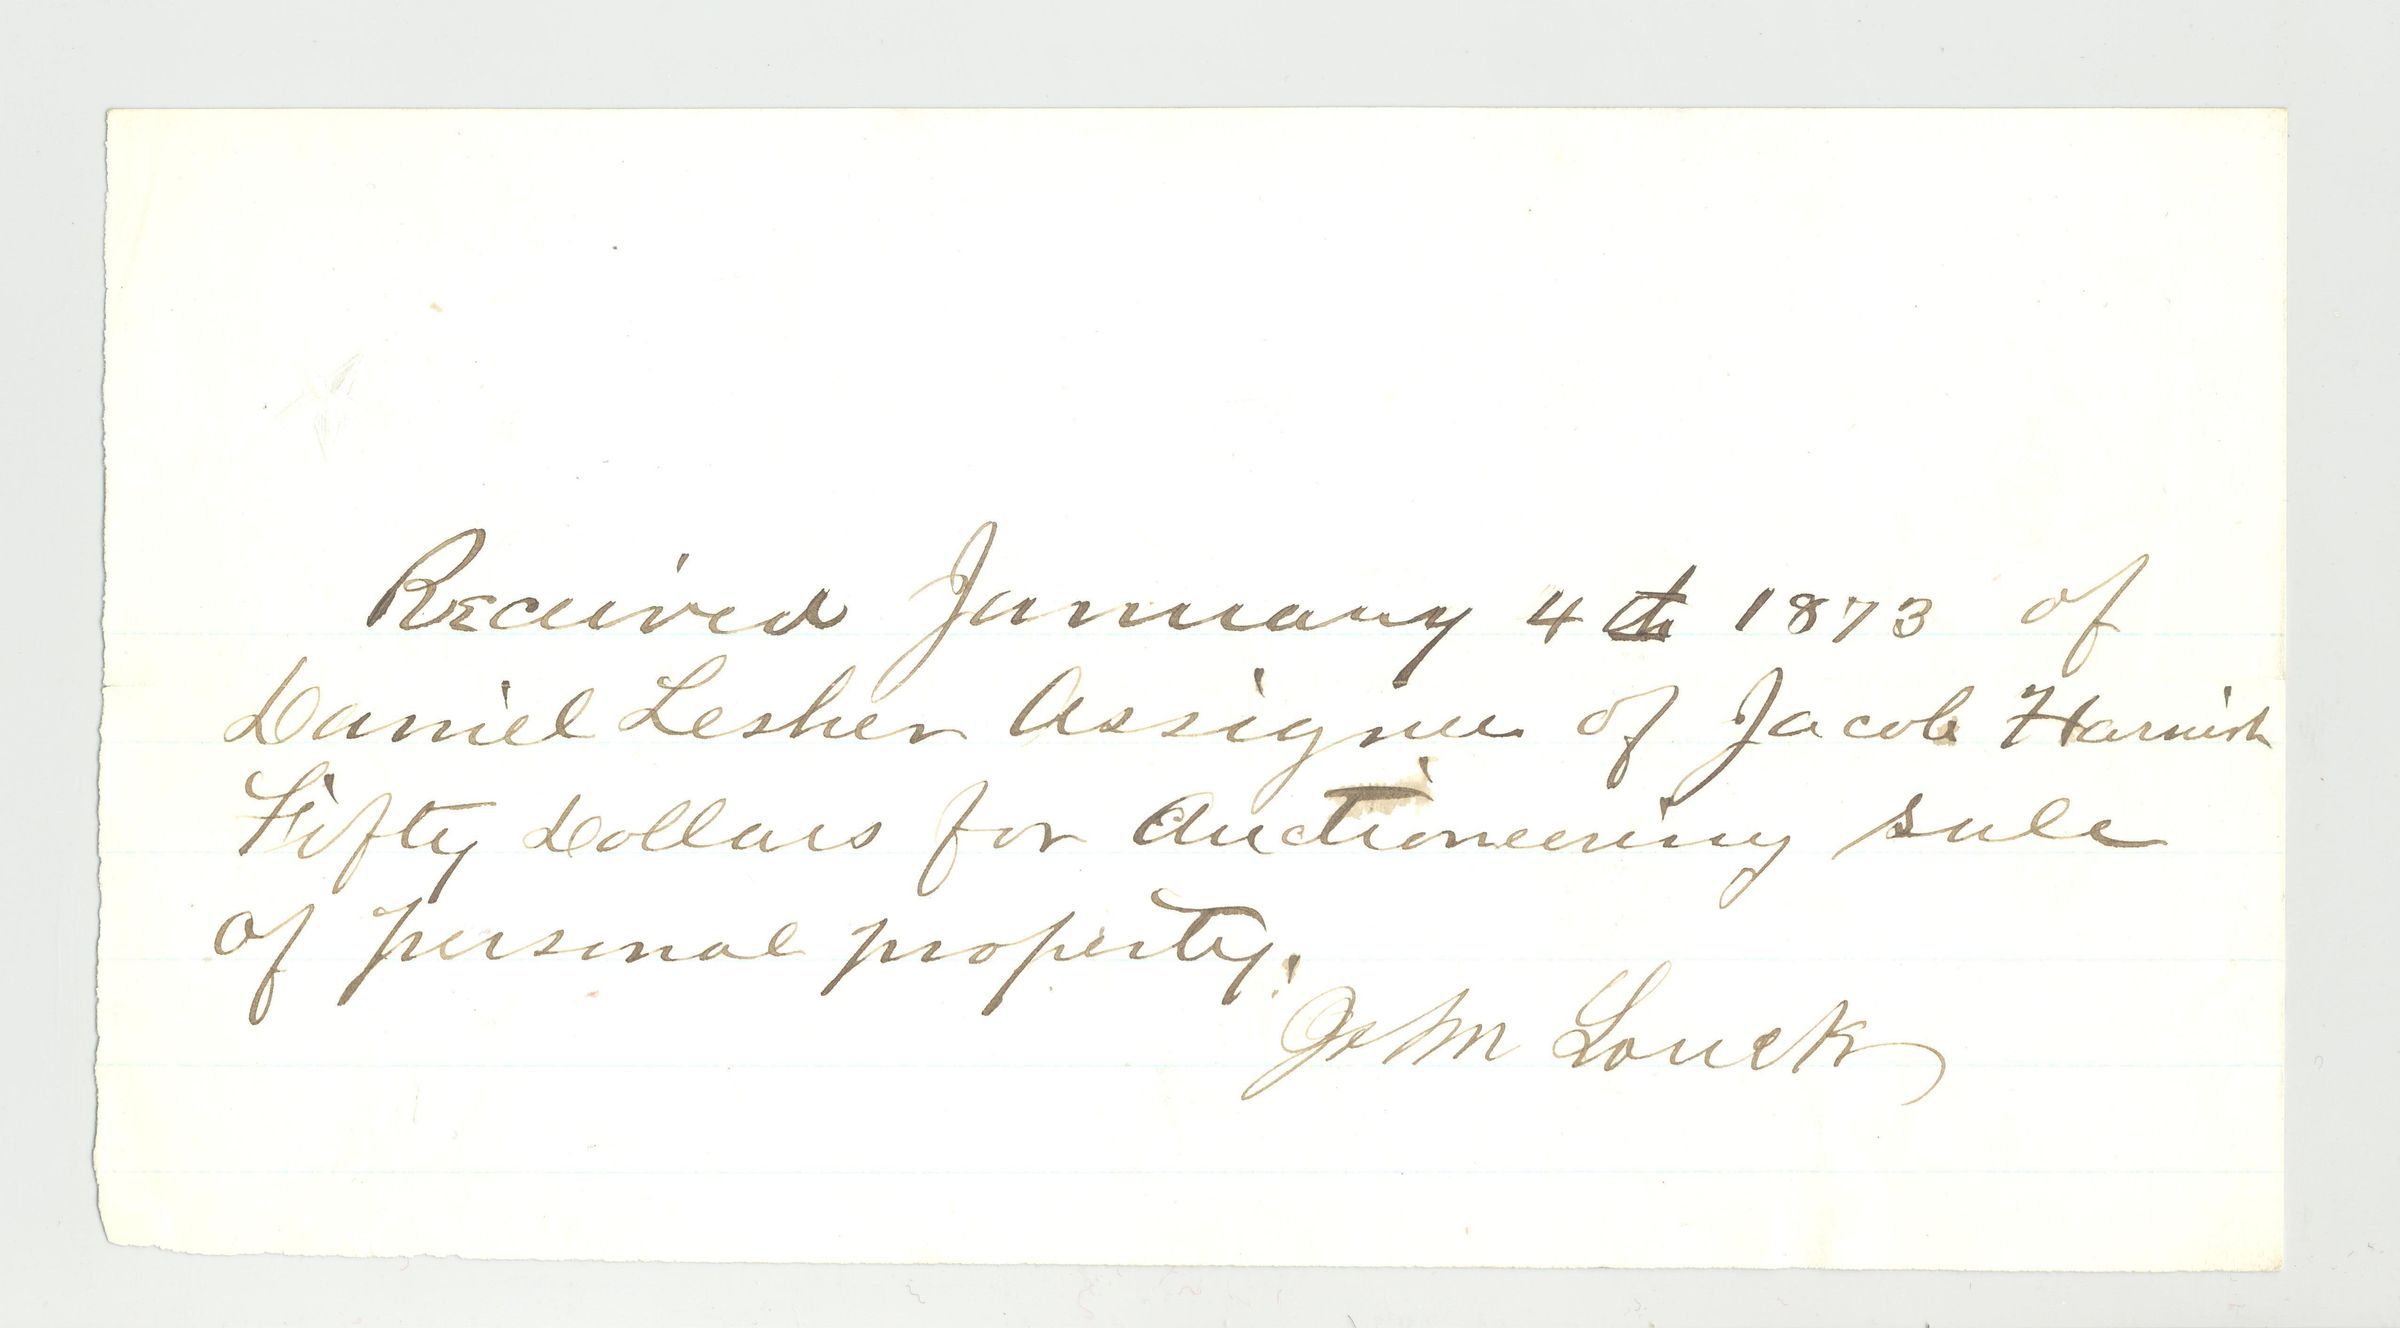 Received January 4th 1873 of
Daniel Lesher Assignee of Jacob Harnish
Fifty Dollars for Auctioneering sale
of personal property.
John Louck